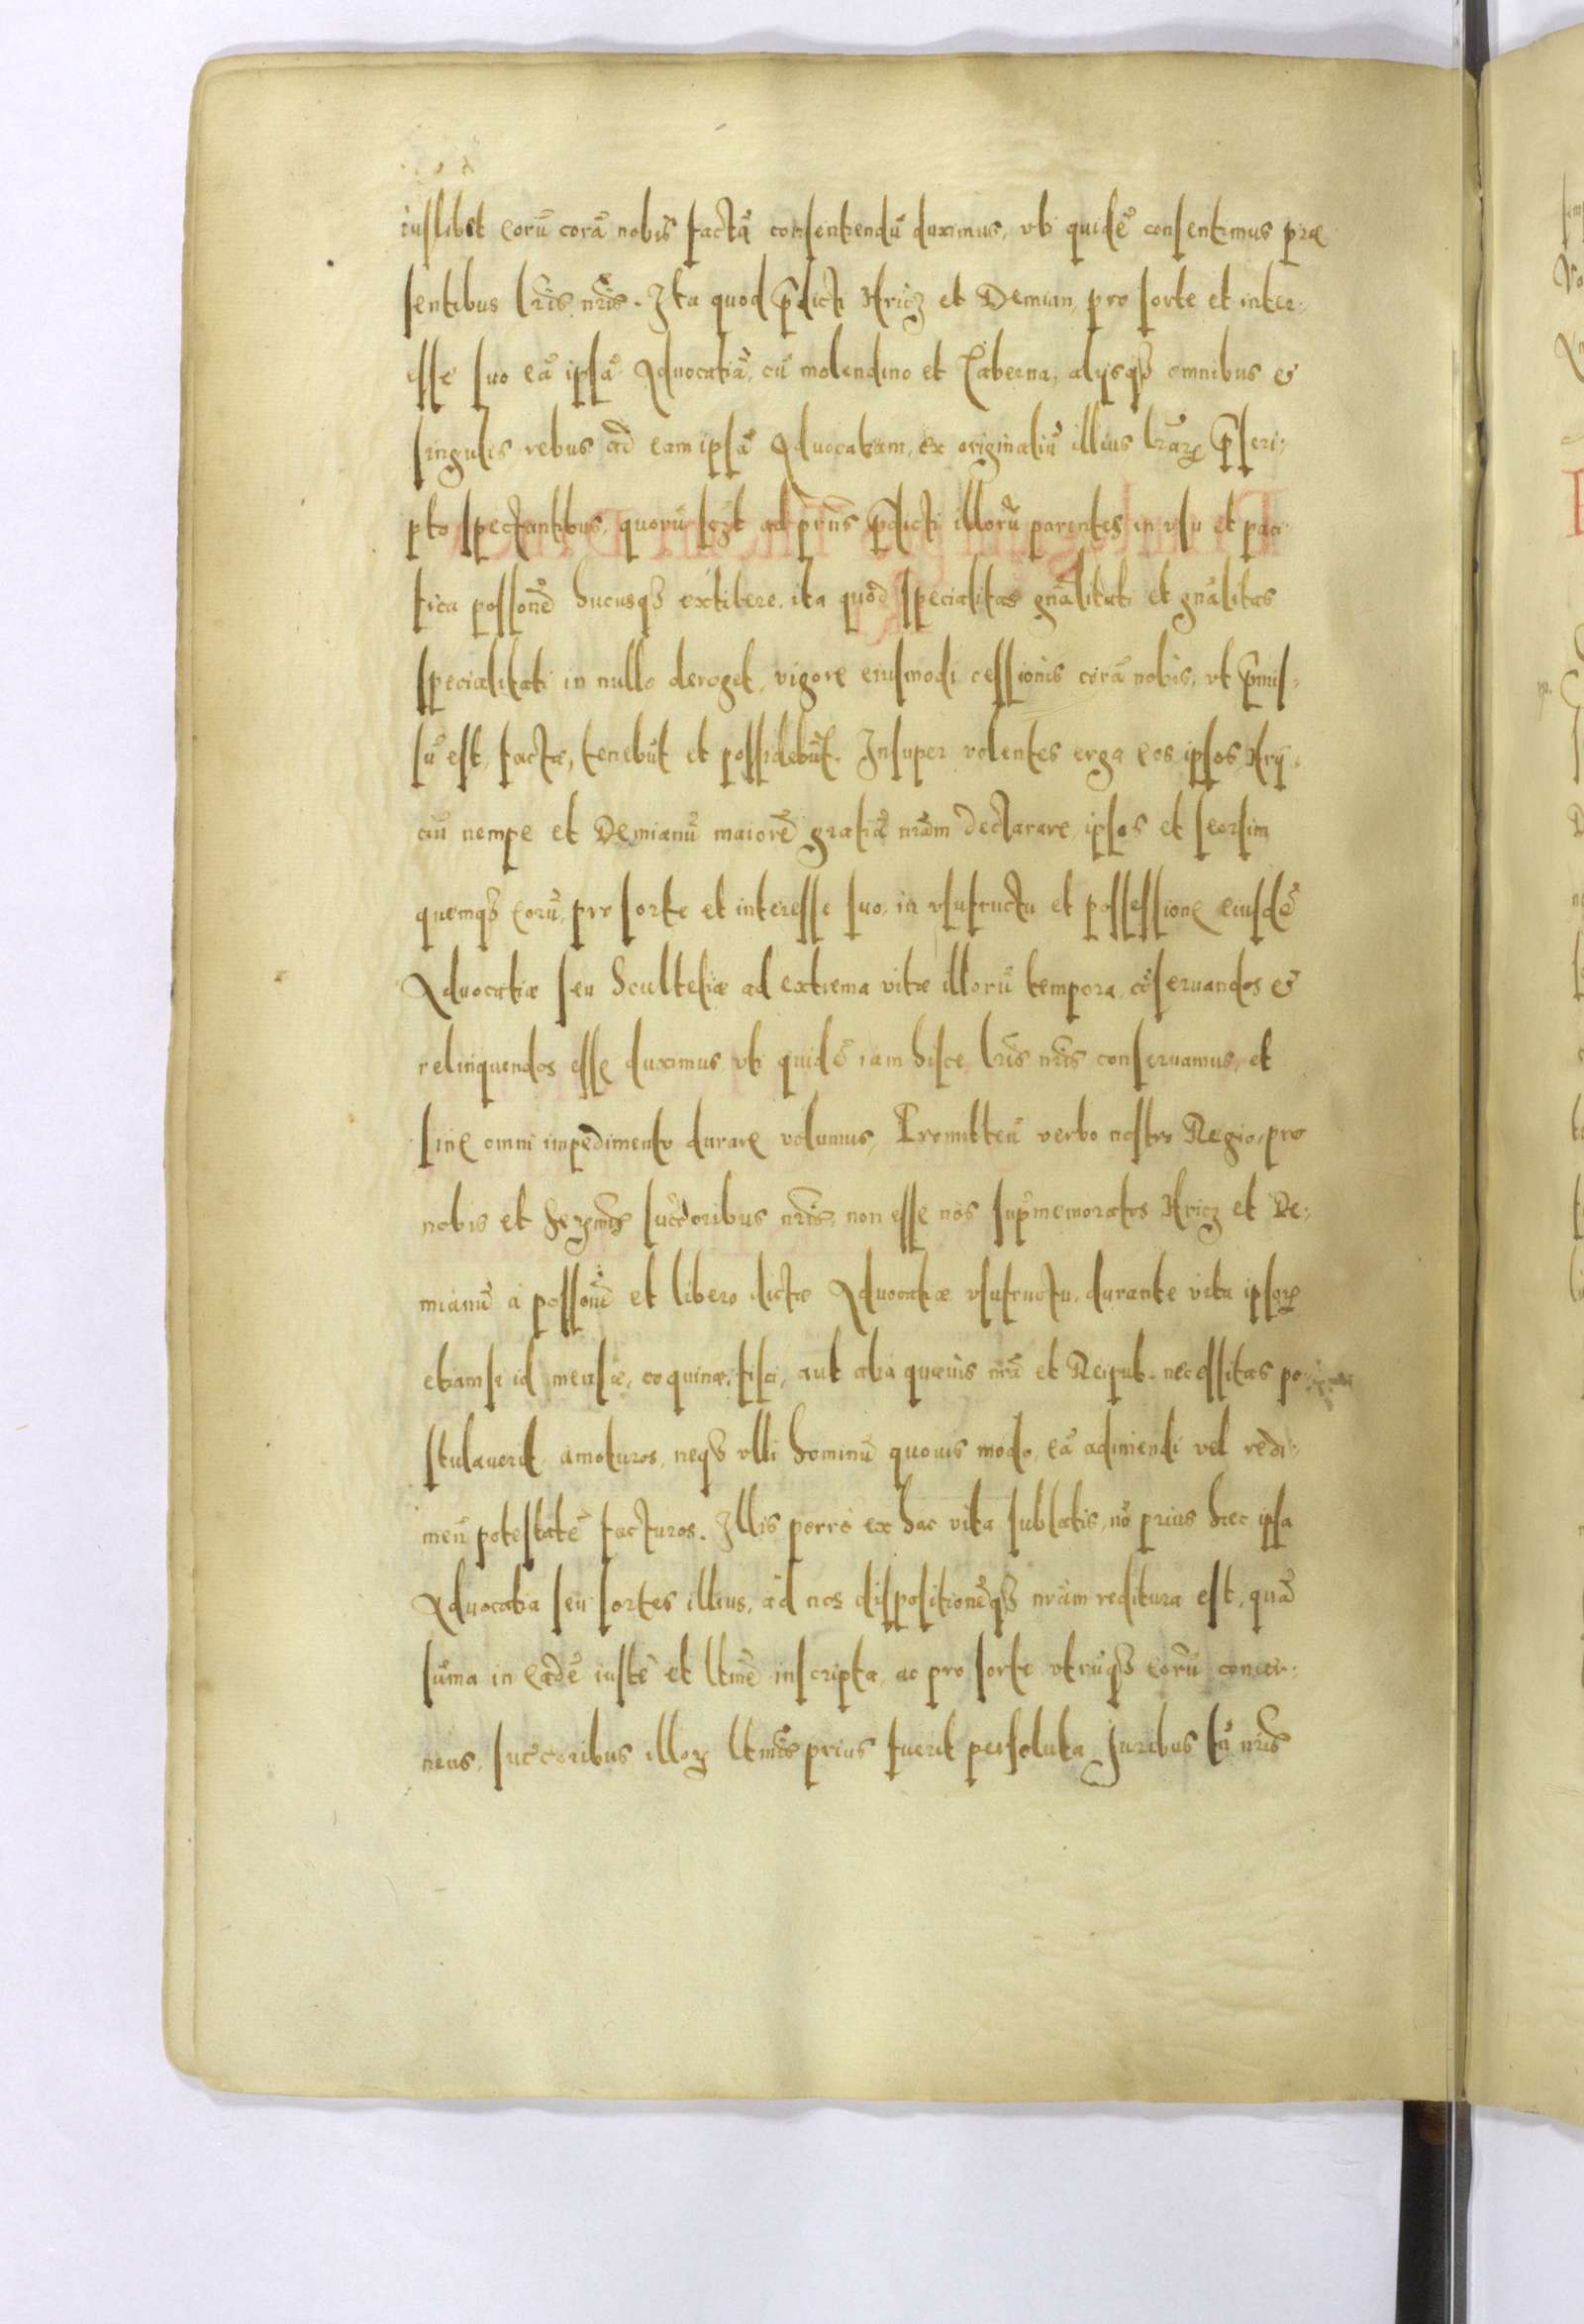 iuslibet eorū corā nobis factā consentiendū duximus, vti quidē consentimus præ
sentibus lrīs nrīs. Ita quod p̄dicti Hricz et Demian, pro sorte et inter-
esse suo eā ipsā Aduocatiā, cū molendino et Taberna, alijsqꝫ omnibus &
singulis rebus ad eam ipsā Aduocatiam, ex originaliū illius lrārꝫ p̄scri-
pto spectantibus, quorū scꝫt ad prn̄s p̄dicti illorū parentes in vsu et paci-
fica possonē hucusqꝫ extitere, ita quod specialitas gnālitati et gnālitas
specialitati in nullo deroget, vigore eiusmodi cessionis corā nobis, vt p̄mis-
sū est, factæ, tenebūt et possidebūt. Insuper volentes erga eos ipsos Hrij-
ciū nempe et Demianū maiorē gratiā nrām declarare, ipsos et seorsim
quemqꝫ eorū, pro sorte et interesse suo, in vsufructu et possessione eiusdē
Aduocatiæ seu Scultetiæ ad extrema vitæ illorū tempora, cōseruandos &
relinquendos esse duximus, vti quidē iam hisce lrīs nrīs conseruamus, et
sine omni impedimento durare volumus, Promitteñ verbo nostro Regio, pro
nobis et Serꝫmīs succ̄oribus nrīs, non esse nos sup̄memoratos Hricz et De-
mianū à possonē et libero dictæ Aduocatiæ vsufructu, durante vita ipsorꝫ
etiamsi id mensæ, coquinæ, fisci, aut alia quæuis nrā et Reipub. necessitas po-
stulauerit, amoturos, neqꝫ vlli hominū quouis modo, eā adimendi vel redi-
meñ potestatē facturos. Illis porrò ex hac vita sublatis, nō prius hæc ipsa
Aduocatia seu sortes illius, ad nos dispositionēqꝫ nrām reditura est, quā
sūma in eadē iustè et ltmē inscripta, ac pro sorte vtrūqꝫ eorū concer-
nens, succ̄oribus illorꝫ ltmīs prius fuerit persoluta. Juribus tn̄ nrīs